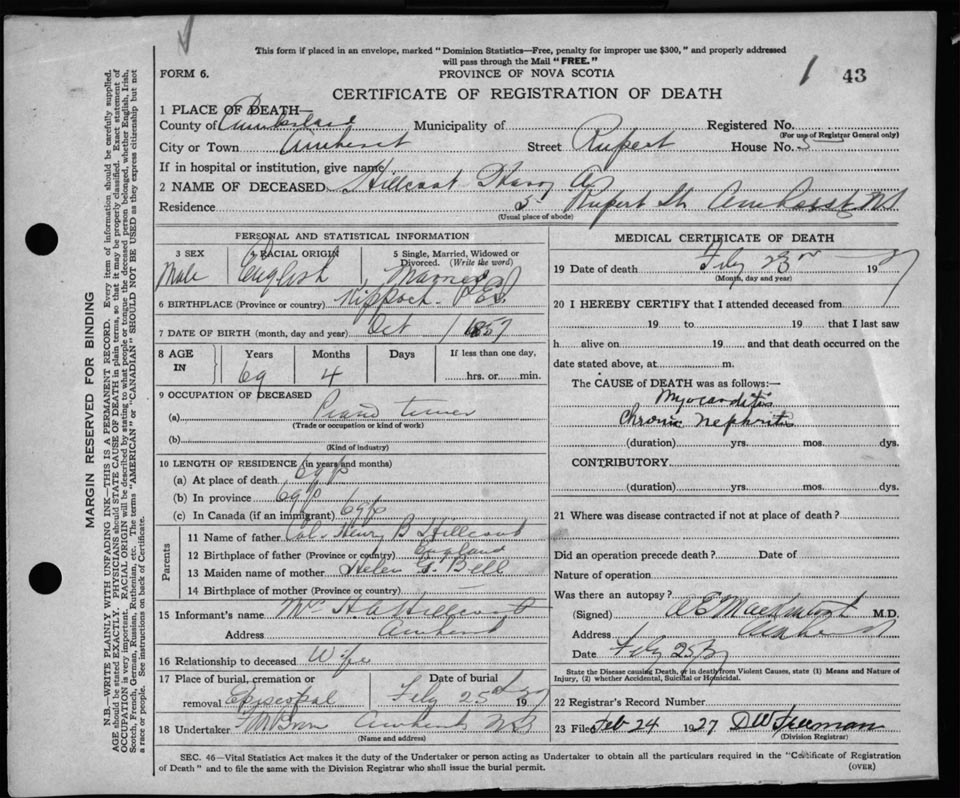 This form if placed in an envelope, marked "Dominion Statistics—Free, penalty for improper use $300," and properly addressed
will pass through the Mail "FREE."
FORM 6.
PROVINCE OF NOVA SCOTIA
1 43
CERTIFICATE OF REGISTRATION OF DEATH
1 PLACE OF DEATH—
County of Cumberland Municipality of Registered No.
(For use of Registrar General only)
City or Town Amherst Street Rupert House No. 5
If in hospital or institution, give name
2 NAME OF DECEASED Hillcoat Harry A
Residence 5 Rupert St Amherst NS
(Usual place of abode)
PERSONAL AND STATISTICAL INFORMATION
3 SEX 4 RACIAL ORIGIN 5 Single, Married, Widowed or Divorced. (Write the word)
Male English Married
6 BIRTHPLACE (Province or country) Kippoch P.E.I
7 DATE OF BIRTH (month, day and year) Oct 1857
8 AGE IN Years Months Days If less than one day,
69 4 hrs. or min.
9 OCCUPATION OF DECEASED
(a) Piano tuner
(Trade or occupation or kind of work)
(b)
(Kind of industry)
10 LENGTH OF RESIDENCE (in years and months)
(a) At place of death
(b) In province
(c) In Canada (if an immigrant)
Parents
11 Name of father Col. Henry B Hillcoat
12 Birthplace of father (Province or country) England
13 Maiden name of mother Helen G. Bell
14 Birthplace of mother (Province or country)
15 Informant's name Mrs H A Hillcoat
Address Amherst
16 Relationship to deceased Wife
17 Place of burial, cremation or removal Date of burial
Episcopal Feby 25 1927
18 Undertaker Amherst NS
(Name and address)
MEDICAL CERTIFICATE OF DEATH
19 Date of death Feby 23rd 1927
(Month, day and year)
20 I HEREBY CERTIFY that I attended deceased from
19 to 19 that I last saw
h alive on 19 and that death occurred on the
date stated above, at m.
The CAUSE of DEATH was as follows:—
Myocarditis
Chronic Nephritis
(duration) yrs. mos. dys.
CONTRIBUTORY
(duration) yrs. mos. dys.
21 Where was disease contracted if not at place of death?
Did an operation precede death? Date of
Nature of operation
Was there an autopsy?
(Signed) M.D.
Address Amherst
Date Feby 25
State the Disease causing Death, or in death from Violent Causes, state (1) Means and Nature of
Injury, (2) whether Accidental, Suicidal or Homicidal.
22 Registrar's Record Number
23 Filed Feb 24 1927 D W Freeman
(Division Registrar)
SEC. 46—Vital Statistics Act makes it the duty of the Undertaker or person acting as Undertaker to obtain all the particulars required in the "Certificate of Registration
of Death" and to file the same with the Division Registrar who shall issue the burial permit. (OVER)
MARGIN RESERVED FOR BINDING
N.B.—WRITE PLAINLY WITH UNFADING INK—THIS IS A PERMANENT RECORD. Every item of information should be carefully supplied.
AGE should be stated EXACTLY. PHYSICIANS should STATE CAUSE OF DEATH in plain terms, so that it may be properly classified. Exact statement of
OCCUPATION is very important. RACIAL ORIGIN will be described by stating to what people or tongue the deceased person belonged, whether English, Irish,
Scotch, French, German, Russian, Ruthenian, etc. The terms "AMERICAN" or "CANADIAN" SHOULD NOT BE USED as they express citizenship but not
a race or people. See instructions on back of Certificate.